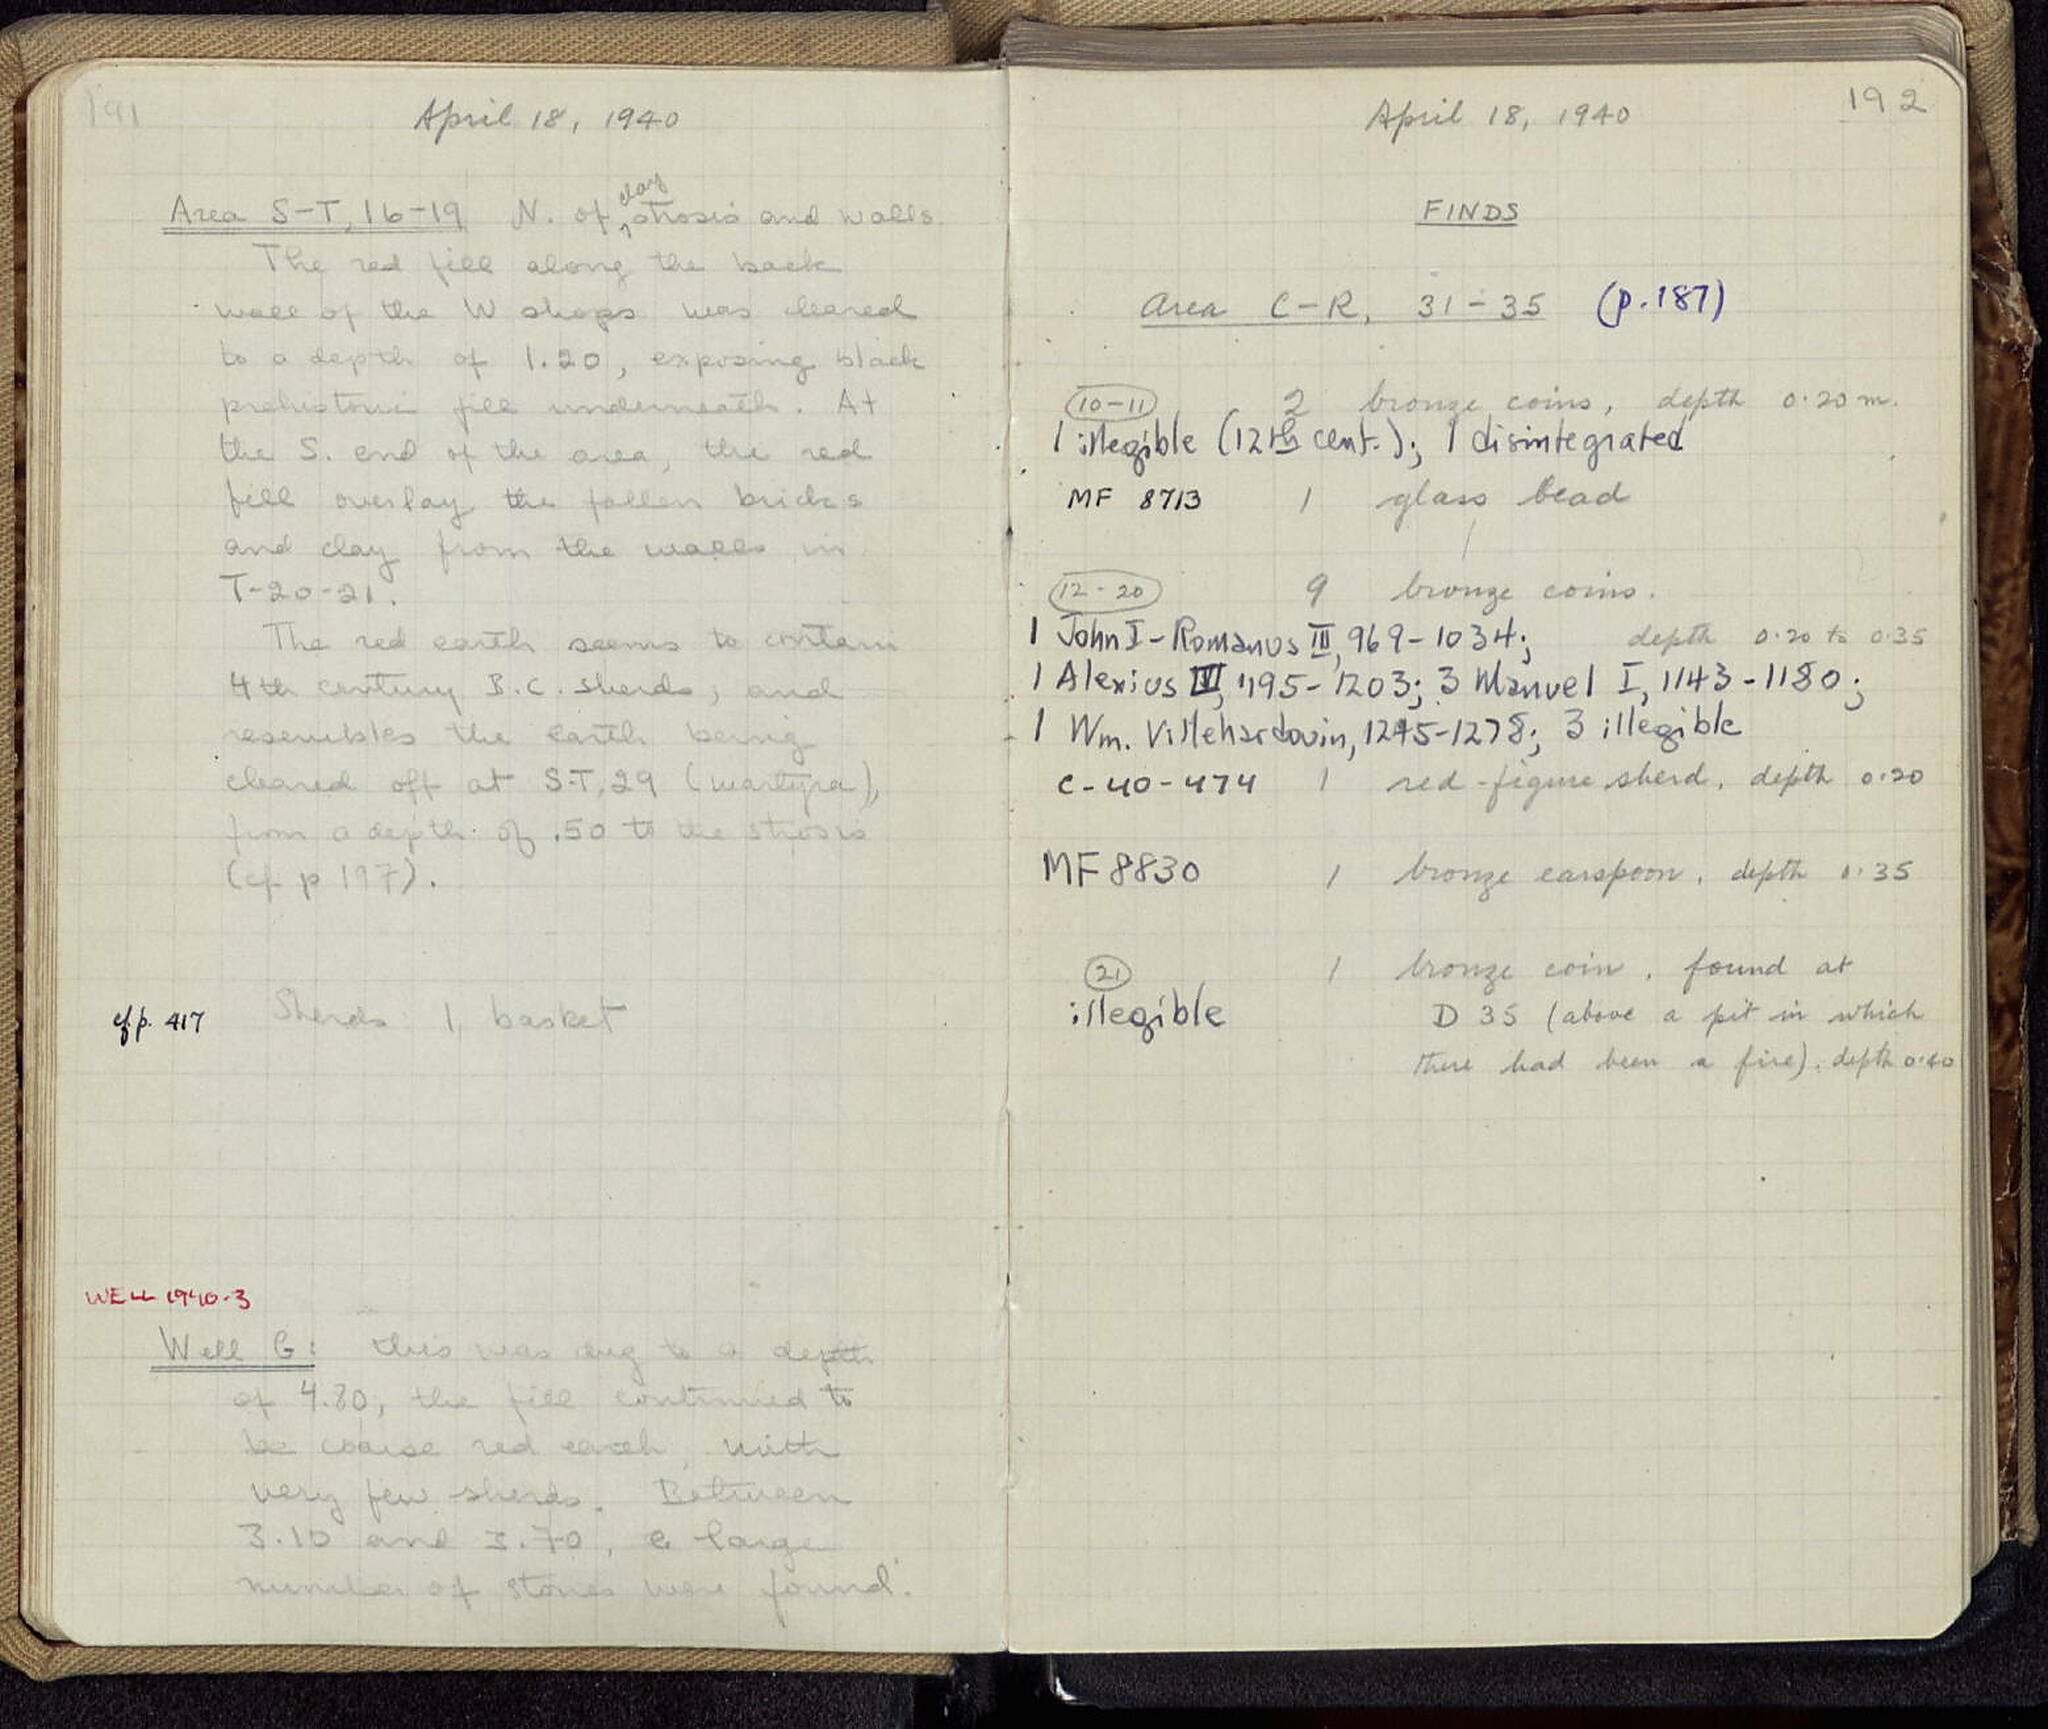 191
April 18, 1940
Area S-T, 16-19 N. of clay strosis and walls
The red fill along the back
wall of the W shops was cleared
to a depth of 1.20, exposing black
prehistoric fill underneath. At
the S. end of the area, the red
fill overlay the fallen bricks
and clay from the walls in
T-20-21.
The red earth seems to contain
4th century B.C. sherds, and
resembles the earth being
cleared off at S-T, 29 (martyra),
from a depth of .50 to the strosis
(cf p 197).
cf. p. 417 Sherds 1 basket
WELL 1940-3
Well G: this was dug to a depth
of 4.80, the fill continued to
be coarse red earth, with
very few sherds. Between
3.10 and 3.70, a large
number of stones were found.
192
April 18, 1940
FINDS
Area C-R, 31-35 (p. 187)
10-11 2 bronze coins, depth 0.20 m.
1 illegible (12th cent.); 1 disintegrated
MF 8713 1 glass bead
12-20 9 bronze coins.
1 John I - Romanus III, 969-1034; depth 0.20 to 0.35
1 Alexius IV, 1195-1203; 3 Manuel I, 1143-1180;
1 Wm. Villehardouin, 1245-1278; 3 illegible
C-40-474 1 red-figure sherd, depth 0.20
MF 8830 1 bronze earspoon, depth 0.35
21 1 bronze coin, found at
illegible D 35 (above a pit in which
there had been a fire). depth 0.40